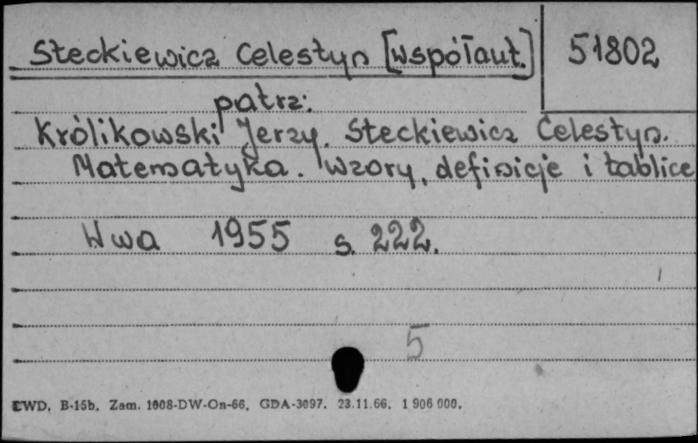 Steckiewicz Celestyn [współaut.] 51802
patrz:
Królikowski Jerzy. Steckiewicz Celestyn.
Matematyka. Wzory, definicje i tablice
Wwa 1955 s. 222.
5
LWD. B-15b. Zam. 1608-DW-On-66. GDA-3097. 23.11.66. 1 906 000.